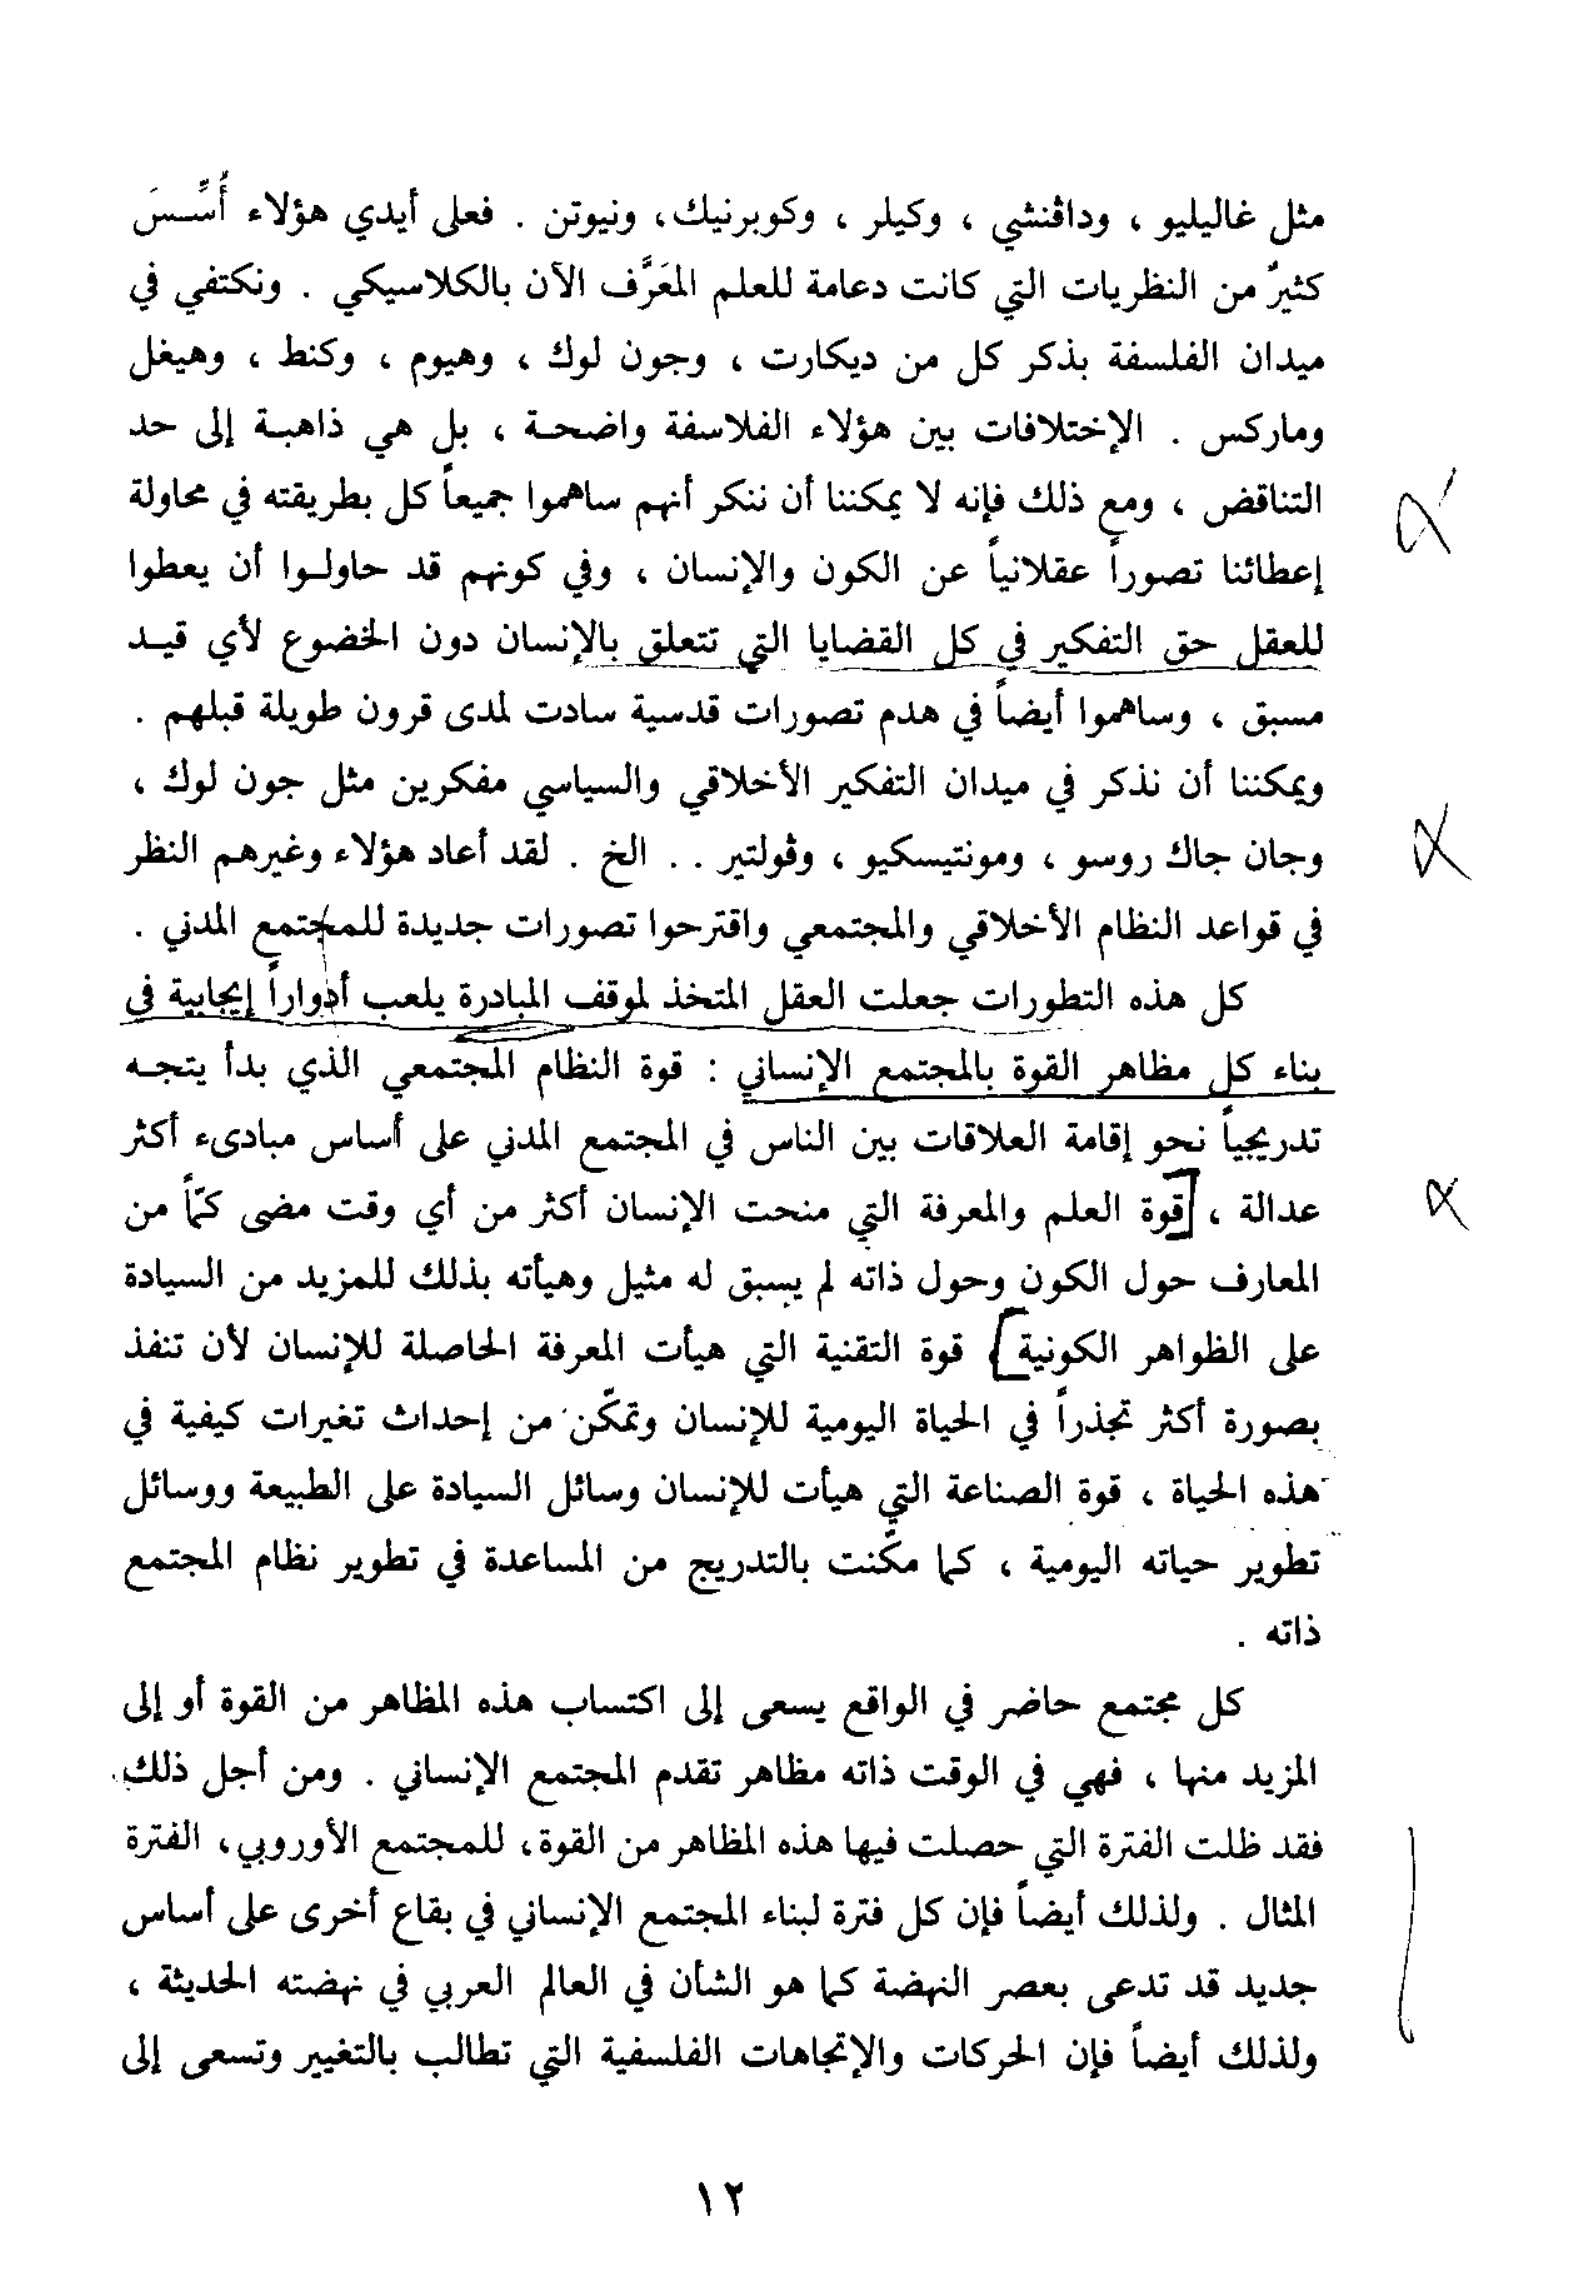 مثل غاليليو ، وداڤنشي ، وكيلر ، وكوبرنيك، ونيوتن . فعلى أيدي هؤلاء أُسِّسَ
كثيرٌ من النظريات التي كانت دعامة للعلم المَعَرَّف الآن بالكلاسيكي . ونكتفي في
ميدان الفلسفة بذكر كل من ديكارت ، وجون لوك ، وهيوم ، وكنط ، وهيغل
وماركس . الإختلافات بين هؤلاء الفلاسفة واضحة ، بل هي ذاهبة إلى حد
التناقض ، ومع ذلك فإنه لا يمكننا أن ننكر أنهم ساهموا جميعاً كل بطريقته في محاولة
إعطائنا تصوراً عقلانياً عن الكون والإنسان ، وفي كونهم قد حاولوا أن يعطوا
للعقل حق التفكير في كل القضايا التي تتعلق بالإنسان دون الخضوع لأي قيد
مسبق ، وساهموا أيضاً في هدم تصورات قدسية سادت لمدى قرون طويلة قبلهم .
ويمكننا أن نذكر في ميدان التفكير الأخلاقي والسياسي مفكرين مثل جون لوك ،
وجان جاك روسو ، ومونتيسكيو ، وڤولتير . . الخ . لقد أعاد هؤلاء وغيرهم النظر
في قواعد النظام الأخلاقي والمجتمعي واقترحوا تصورات جديدة للمجتمع المدني .
كل هذه التطورات جعلت العقل المتخذ لموقف المبادرة يلعب أدواراً إيجابية في
بناء كل مظاهر القوة بالمجتمع الإنساني : قوة النظام المجتمعي الذي بدأ يتجه
تدريجياً نحو إقامة العلاقات بين الناس في المجتمع المدني على أساس مبادىء أكثر
عدالة ، [قوة العلم والمعرفة التي منحت الإنسان أكثر من أي وقت مضى كمّاً من
المعارف حول الكون وحول ذاته لم يسبق له مثيل وهيأته بذلك للمزيد من السيادة
على الظواهر الكونية] قوة التقنية التي هيأت المعرفة الحاصلة للإنسان لأن تنفذ
بصورة أكثر تجذراً في الحياة اليومية للإنسان وتمكّن من إحداث تغيرات كيفية في
هذه الحياة ، قوة الصناعة التي هيأت للإنسان وسائل السيادة على الطبيعة ووسائل
تطوير حياته اليومية ، كما مكّنت بالتدريج من المساعدة في تطوير نظام المجتمع
ذاته .
كل مجتمع حاضر في الواقع يسعى إلى اكتساب هذه المظاهر من القوة أو إلى
المزيد منها ، فهي في الوقت ذاته مظاهر تقدم المجتمع الإنساني . ومن أجل ذلك
فقد ظلت الفترة التي حصلت فيها هذه المظاهر من القوة، للمجتمع الأوروبي، الفترة
المثال . ولذلك أيضاً فإن كل فترة لبناء المجتمع الإنساني في بقاع أخرى على أساس
جديد قد تدعى بعصر النهضة كما هو الشأن في العالم العربي في نهضته الحديثة ،
ولذلك أيضاً فإن الحركات والإتجاهات الفلسفية التي تطالب بالتغيير وتسعى إلى
١٢